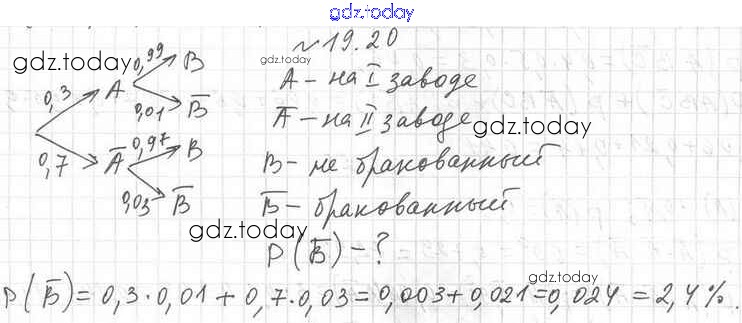 gdz.today
№19.20
gdz.today
gdz.today
0,99 B
A – на I заводе
0,3 A
0,01 B̅
A̅ – на II заводе
gdz.today
0,7 A̅ 0,97 B
B – не бракованный
0,03 B̅
B̅ – бракованный
gdz.today
P(B̅) – ?
gdz.today
P(B̅) = 0,3·0,01 + 0,7·0,03 = 0,003 + 0,021 = 0,024 = 2,4%.